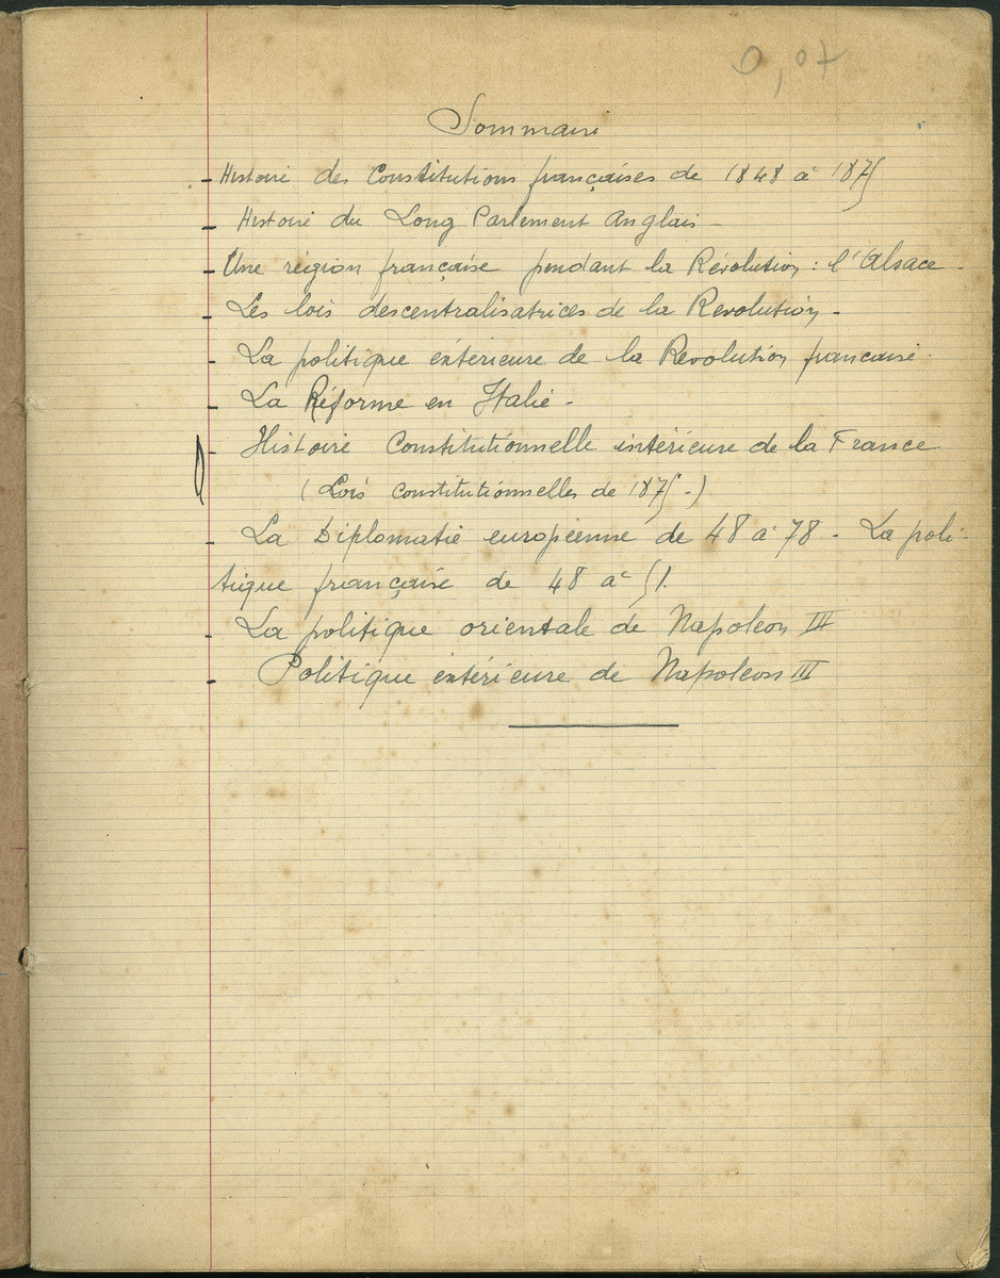 0,07
Sommaire
- Histoire des Constitutions françaises de 1848 à 1875
- Histoire du Long Parlement Anglais -
- Une région française pendant la Révolution : l'Alsace -
- Les lois descentralisatrices de la Revolution -
- La politique extérieure de la Revolution française.
- La Réforme en Italie -
- Histoire Constitutionnelle intérieure de la France
(Lois constitutionnelles de 1875 -)
- La Diplomatie européenne de 48 à 78 - La poli-
tique française de 48 à 51.
- La politique orientale de Napoleon III
- Politique extérieure de Napoleon III